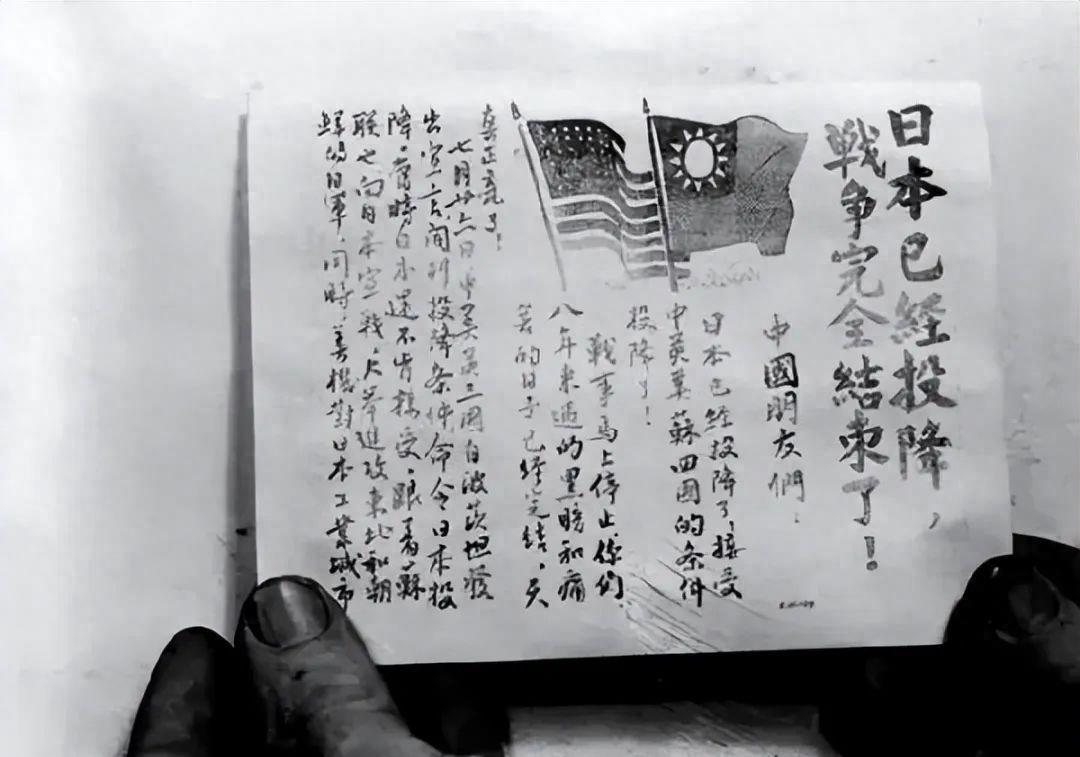 日本已経投降，
戰争完全結束了！
中國朋友們：
日本已経投降了，接受
中英美蘇四國的条件
投降了！
戰事馬上停止，你们
八年来過的黑暗和痛
苦的日子已経完結，天
真正亮了！
七月廿六日中美英三國自波茨坦發
出宣言，開列投降条件命令日本投
降。當時日本還不肯接受，跟着蘇
联也向日本宣戰，大举進攻東北和朝
鮮的日軍，同時，美機對日本工業城市